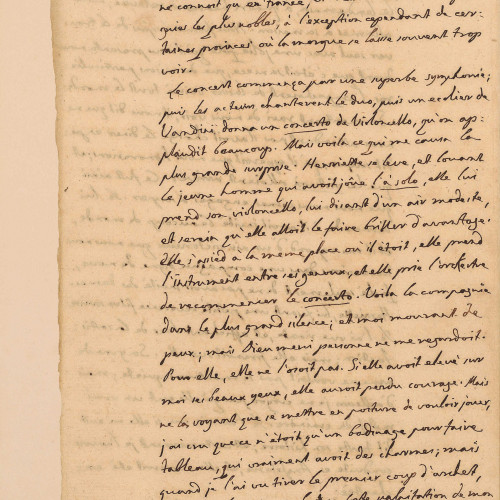 ne connoit qu'en France, et
gnies les plus nobles, à l'exception cependant de cer-
taines provinces où la morgue se laisse souvent trop
voir.
Le concert commença par une superbe symphonie;
puis les acteurs chanterent le duo, puis un ecolier de
Vandini donna un concerto de Violoncello, qu'on ap-
plaudit beaucoup. Mais voila ce qui me causa la
plus grande surprise. Henriette se leve, et louant
le jeune homme qui avoit joué l'à solo, elle lui
prend son violoncello, lui disant d'un air modeste,
et serein qu'elle alloit le faire briller d'avantage.
Elle s'assied à la meme place où il étoit, elle prend
l'instrument entre ses genoux, et elle prie l'orchestre
de recommencer le concerto. Voila la compagnie
dans le plus grand silence; et moi mourant de
peur; mais Dieu merci personne ne me regardoit.
Pour elle, elle ne l'osoit pas. Si elle avoit elevé sur
moi ses beaux yeux, elle auroit perdu courage. Mais
ne la voyant que se mettre en posture de vouloir jouer,
j'ai cru que ce n'étoit qu'un badinage pour faire
tableau, qui vraiment avoit des charmes; mais
quand je l'ai vu tirer le premier coup d'archet,
palpitation de mon